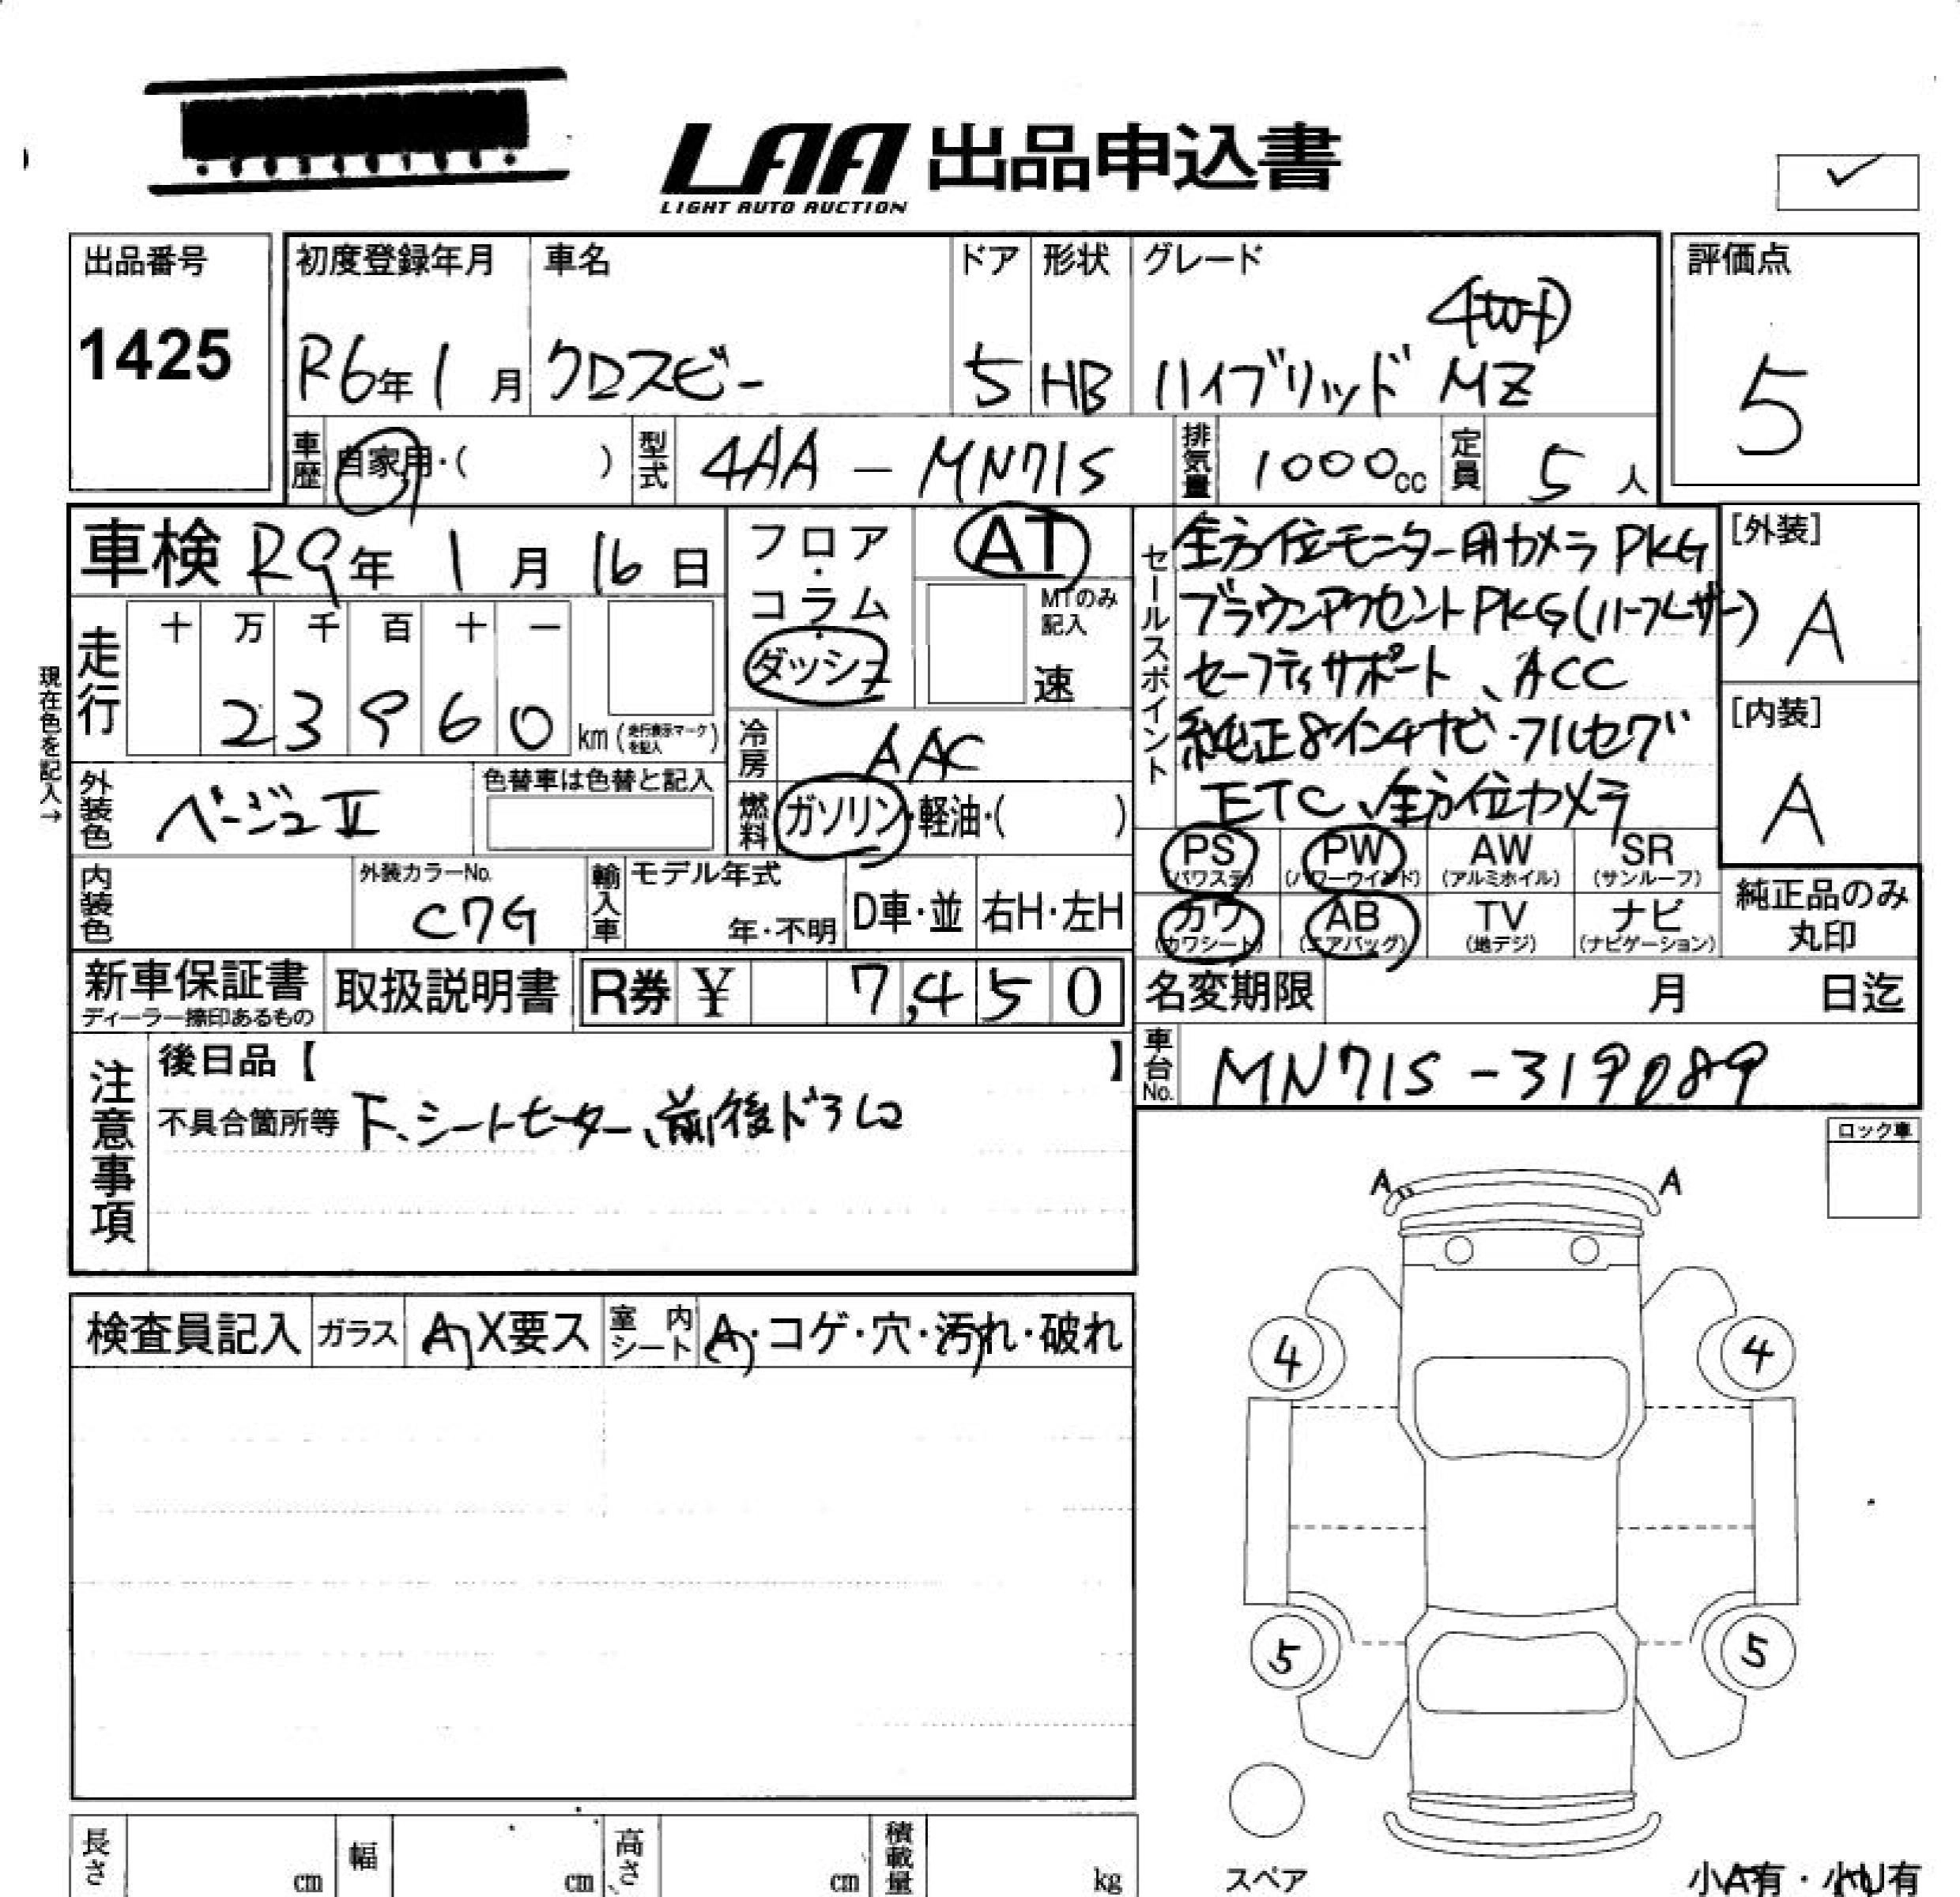 LAA 出品申込書
LIGHT AUTO AUCTION
出品番号
1425
初度登録年月
R6年 1月
車名
クロスビー
ドア
5
形状
HB
グレード
4WD
ハイブリッド MZ
評価点
5
車歴
自家用・( )
型式
4AA - MN71S
排気量
1000cc
定員
5人
車検 R9年 1月 16日
走行
十 万 千 百 十 一
2 3 9 6 0 km (走行表示マークを記入)
現在色を記入→
外装色
ベージュⅡ
色替車は色替と記入
内装色
外装カラーNo.
C7G
輸入車
モデル年式
年・不明
D車・並
右H・左H
フロア・コラム・ダッシュ
AT
MTのみ記入
速
冷房
AAC
燃料
ガソリン・軽油・( )
セールスポイント
全方位モニター用カメラPKG
ブラウンアクセントPKG(ハーフレザー)
セーフティサポート、ACC
純正8インチナビ・フルセグ
ETC、全方位カメラ
[外装]
A
[内装]
A
PS (パワステ)
PW (パワーウインド)
AW (アルミホイル)
SR (サンルーフ)
カワ (カワシート)
AB (エアバッグ)
TV (地デジ)
ナビ (ナビゲーション)
純正品のみ丸印
新車保証書
ディーラー捺印あるもの
取扱説明書
R券 ¥ 7,450
名変期限 月 日迄
車台No.
MN71S-319089
注意事項
後日品【 】
不具合箇所等 下、シートヒーター、前後ドラレコ
ロック車
A A
検査員記入
ガラス
A X要ス
室内シート
A・コゲ・穴・汚れ・破れ
4 4
5 5
スペア
小A有・小U有
長さ cm
幅 cm
高さ cm
積載量 kg